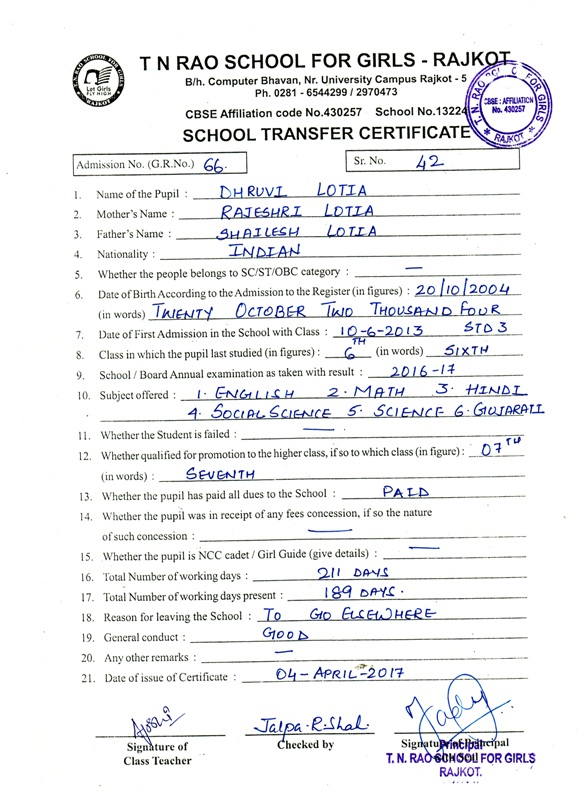 T. N. RAO SCHOOL FOR GIRLS
Let Girls
FLY HIGH
RAJKOT
T N RAO SCHOOL FOR GIRLS - RAJKOT
B/h. Computer Bhavan, Nr. University Campus Rajkot - 5
Ph. 0281 - 6544299 / 2970473
CBSE Affiliation code No.430257 School No.13224
SCHOOL TRANSFER CERTIFICATE
CBSE: AFFILIATION
No. 430257
RAJKOT
Admission No. (G.R.No.) 66. Sr. No. 42
1. Name of the Pupil : DHRUVI LOTIA
2. Mother's Name : RAJESHRI LOTIA
3. Father's Name : SHAILESH LOTIA
4. Nationality : INDIAN
5. Whether the people belongs to SC/ST/OBC category : —
6. Date of Birth According to the Admission to the Register (in figures) : 20/10/2004
(in words) TWENTY OCTOBER TWO THOUSAND FOUR
7. Date of First Admission in the School with Class : 10-6-2013 STD 3
8. Class in which the pupil last studied (in figures) : 6TH (in words) SIXTH
9. School / Board Annual examination as taken with result : 2016-17
10. Subject offered : 1. ENGLISH 2. MATH 3. HINDI
4. SOCIAL SCIENCE 5. SCIENCE 6. GUJARATI
11. Whether the Student is failed : —
12. Whether qualified for promotion to the higher class, if so to which class (in figure) : 07TH
(in words) : SEVENTH
13. Whether the pupil has paid all dues to the School : PAID
14. Whether the pupil was in receipt of any fees concession, if so the nature
of such concession : —
15. Whether the pupil is NCC cadet / Girl Guide (give details) : —
16. Total Number of working days : 211 DAYS
17. Total Number of working days present : 189 DAYS.
18. Reason for leaving the School : TO GO ELSEWHERE
19. General conduct : GOOD
20. Any other remarks : —
21. Date of issue of Certificate : 04-APRIL-2017
Jalpa.R.Shah.
Signature of
Class Teacher
Checked by
Signature Principal
Principal
T. N. RAO SCHOOL FOR GIRLS
RAJKOT.